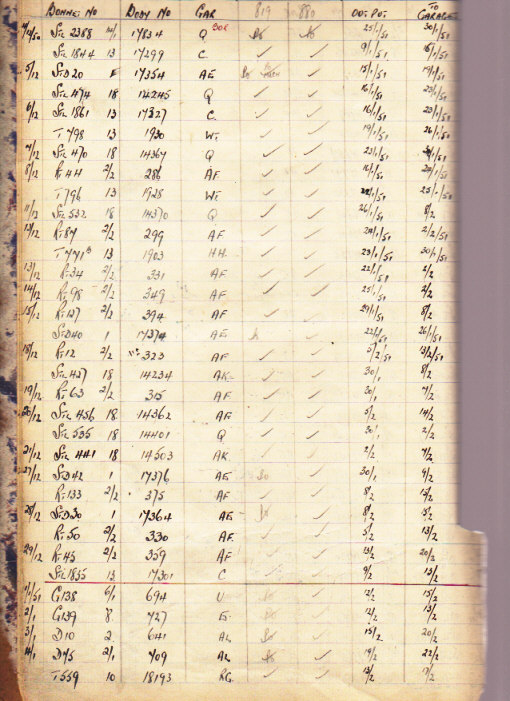 BONNET NO BODY NO CAR 819 880 OUT. PUT. TO GARAGE
4/12/50 STL 2388 17834 Q 30/1/51
STL 1844 13 17299 C. ✓ ✓ 9/1/51
5/12 STD 20 17354 AE ✓ 15/1/51 19/1/51
STL 474 18 14245 Q ✓ ✓ 16/1/51 23/1/51
6/12 STL 1861 13 17327 C. ✓ ✓ 16/1/51 23/1/51
T 798 13 1930 WT ✓ ✓ 19/1/51 26/1/51
7/12 STL 470 18 14367 Q ✓ ✓ 23/1/51
8/12 RT 44 2/2 286 AF ✓ ✓ 16/1/51
T 796 13 1928 WT ✓ ✓
11/12 STL 532 18 14370 Q ✓ ✓ 26/1/51 8/2
RT 87 2/2 299 AF ✓ ✓ 2/2/51
13 1903 HH. ✓ ✓ 23/1/51 30/1/51
13/12 RT 34 2/2 331 AF ✓ ✓ 22/1/51 2/2
14/12 RT 98 2/2 349 AF ✓ ✓ 25/1/51 2/2
15/12 RT 127 2/2 394 AF ✓ ✓ 29/1/51 8/2
STD 40 1 17374 AE ✓ 26/1/51
18/12 RT 12 2/2 323 AF ✓ ✓ 5/2/51 13/2/51
STL 427 18 14234 AK ✓ ✓ 30/1 8/2
19/12 RT 63 2/2 315 AF ✓ ✓ 30/1 7/2
20/12 STL 456 18 14362 AF ✓ ✓ 5/2 14/2
STL 535 18 14401 Q ✓ ✓ 30/1 2/2
21/12 STL 441 18 14503 AK ✓ ✓ 2/2 7/2
27/12 STD 42 1 17376 AE ✓ 30/1 9/2
RT 133 2/2 375 AF ✓ ✓ 8/2 13/2
28/12 STD 30 1 17364 AE ✓ 8/2 15/2
RT 50 2/2 330 AF ✓ ✓ 5/2 13/2
29/12 RT 45 2/2 359 AF ✓ ✓ 13/2 20/2
STL 1855 13 17301 C ✓ ✓ 9/2 13/2
1/1/51 G138 6/1 694 U ✓ 12/2 15/2
2/1 G139 8 727 ✓ 12/2 13/2
3/1 D10 2 641 AL ✓ 15/2 20/2
4/1 D75 2/1 709 AL ✓ 19/2 22/2
T559 10 18193 RG. ✓ ✓ 13/2